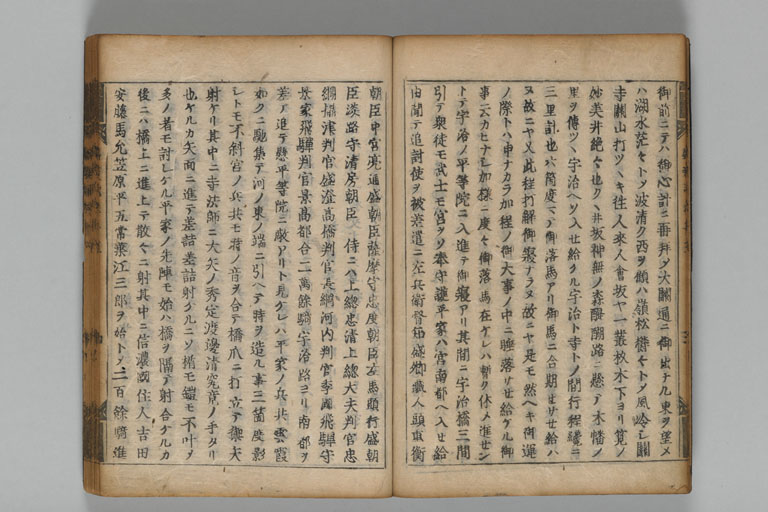 御前ニテハ御心計ニ番拜ダ大關通ニ御出ナル東ヲ望メ
ハ湖水茫々トノ波清ク西ヲ顧ハ嶺松欝々トノ風冷シ關
寺關山打ツヽキ往人來人會坂ヤ一叢杦木下ヨリ筧ノ
妙美井絶々也ク井坂神無ノ森醍醐路ニ懸テ木幡ノ
里ヲ傳ツヽ宇治ヘソ入セ給ケル宇治ト寺トノ間行程纔ニ
三里計也六箇度マテ御落馬アリ御馬ニ合期セサセ給ハ
ヌ故ニヤ又此程打解御寢ナラヌ故ニヤ是モ然ヘキ御運
ノ際トハ申ナカラ加程ノ御大事ノ中ニ睡落サセ給ケル御
事云カヒナシ加樣ニ度々御落馬在ケレハ暫ク休メ進セン
トテ宇治ノ平等院ニ入進テ御寢アリ其間ニ宇治橋三間
引テ衆徒モ武士モ宮ヲソ奉守護平家ハ宮南都ヘ入セ給
由聞テ追討使ヲ被差遣ニ左兵衛督知盛卿藏人頭重衡
朝臣中宮亮通盛朝臣薩摩守忠度朝臣左馬頭行盛朝
臣淡路守清房朝臣侍ニハ上總忠清上總大夫判官忠
綱攝津判官盛澄高橋判官長綱河内判官季國飛驒守
景家飛驒判官景高都合二萬餘騎宇治路ヨリ南都ヲ
差テ追テ懸平等院ニ敵アリト見ケレハ平家ノ兵共雲霞
如クニ馳集テ河ノ東ノ端ニ引ヘテ時ヲ造ル事三箇度影
シトモ不斜宮ノ兵共モ時ノ音ヲ合テ橋爪ニ打立テ禦矢
射ケリ其中ニ寺法師ニ大矢ノ秀定渡邊清究竟ノ手タリ
也ケルカ矢面ニ進テ差詰差詰射ケルニソ楯モ鎧モ不叶ヲ
多ノ者モ討レケル平家ノ先陣モ始ハ橋ヲ隔テ射合ケルカ
後ニハ橋上ニ進上テ散々ニ射其中ニ信濃國住人吉田
安藤馬允笠原平五常葉江三郎ヲ始トメ二百餘騎進